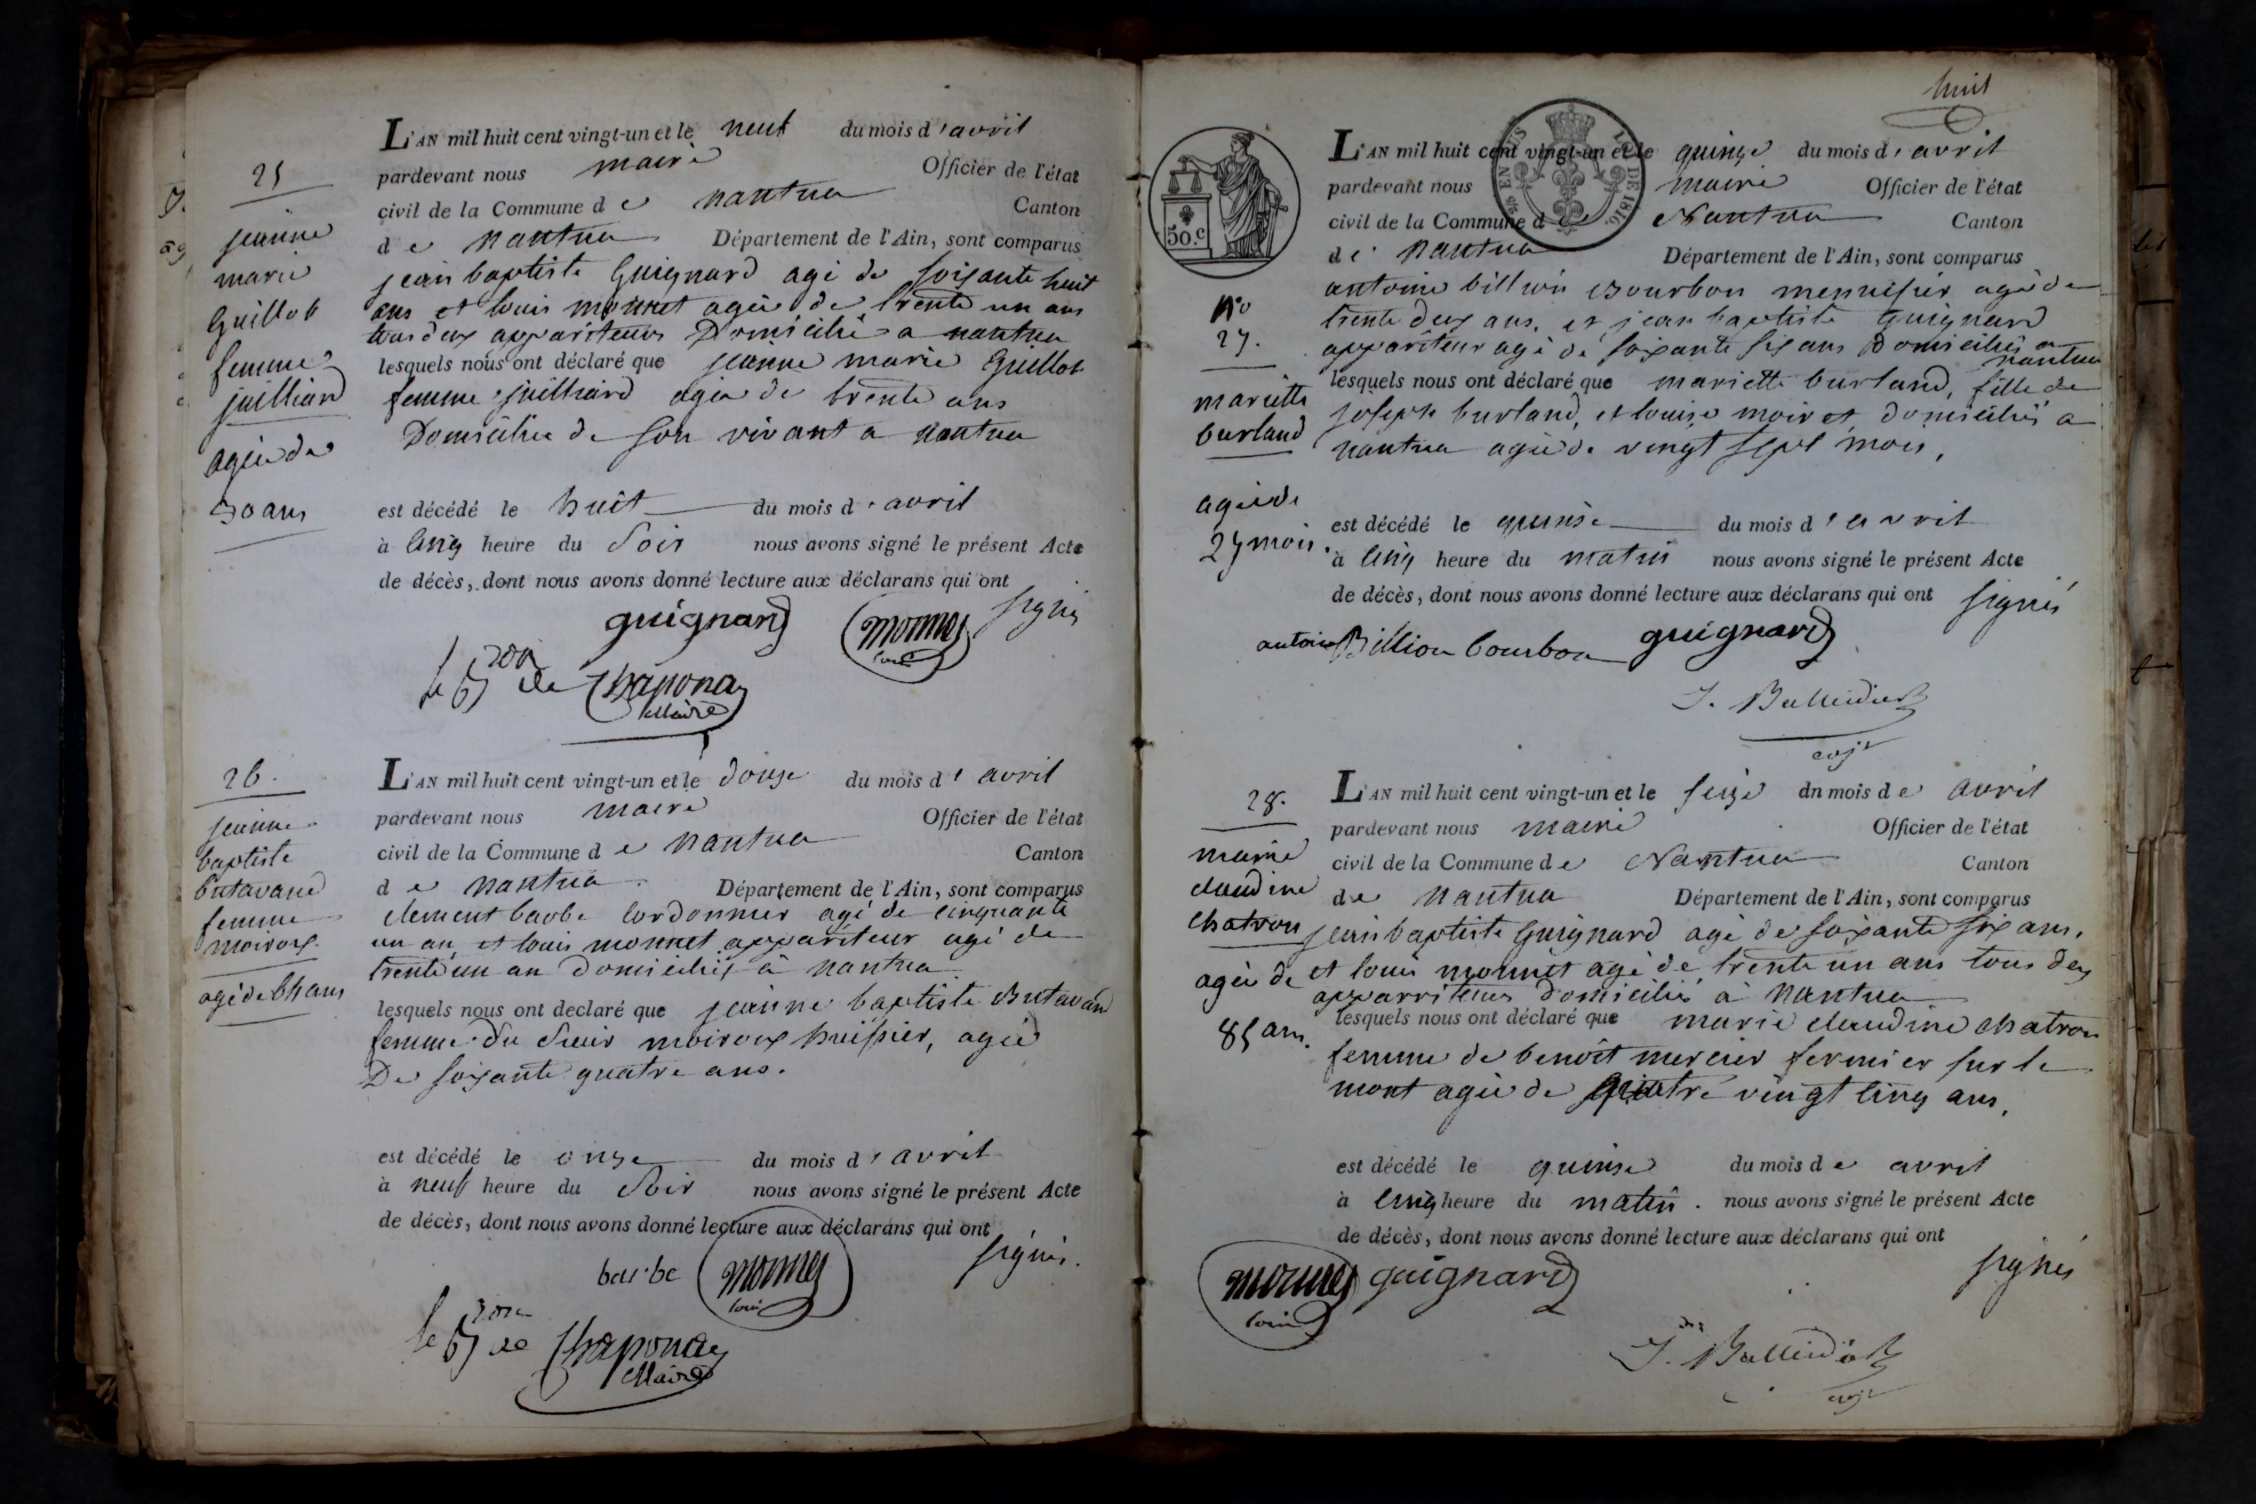 25
jeanne
marie
Guillot
femme
juilliard
agée de
30 ans
L'AN mil huit cent vingt-un et le neuf du mois d'avril
pardevant nous maire Officier de l'état
civil de la Commune de nantua Canton
de nantua Département de l'Ain, sont comparus
jean baptiste Guignard agé de soixante huit
ans et louis monnet agée de trente un ans
tous deux appariteurs Domicilié a nantua
lesquels nous ont déclaré que jeanne marie Guillot
femme juilliard agée de trente ans
Domiciliée de son vivant a nantua
est décédé le huit du mois d'avril
à cinq heure du Soir nous avons signé le présent Acte
de décès, dont nous avons donné lecture aux déclarans qui ont
signés
guignard monnet
louis
le Bon de Chaponay
Maire
26.
jeanne
baptiste
butavand
femme
moiroux
agé de 64 ans
L'AN mil huit cent vingt-un et le douze du mois d'avril
pardevant nous maire Officier de l'état
civil de la Commune de nantua Canton
de nantua Département de l'Ain, sont comparus
clement barbe cordonnier agé de cinquante
un an et louis monnet appariteur agé de
trente un an Domiciliés à nantua
lesquels nous ont declaré que jeanne baptiste Butavand
femme du Sieur moiroux huissier, agée
De soixante quatre ans.
est décédé le onze du mois d'avril
à neuf heure du Soir nous avons signé le présent Acte
de décès, dont nous avons donné lecture aux déclarans qui ont
signés.
barbe monnet
louis
le Bon de Chaponay
Maire
huit
50.c
LOI DE 1816
No
27.
mariette
burland
agée de
27 mois.
L'AN mil huit cent vingt-un et le quinze du mois d'avril
pardevant nous maire Officier de l'état
civil de la Commune de Nantua Canton
de nantua Département de l'Ain, sont comparus
antoine billion Bourbon menuisier agé de
trente deux ans, et jean baptiste Guignard
appariteur agé de soixante six ans Domiciliés a
nantua
lesquels nous ont déclaré que mariette burland, fille de
joseph burland, et louise moiret domiciliés a
nantua agée de vingt sept mois,
est décédé le quinse du mois d'avril
à cinq heure du matin nous avons signé le présent Acte
de décès, dont nous avons donné lecture aux déclarans qui ont
signés
antoine Billion bourbon guignard
adjt
28.
marie
claudine
chatron
agée de
85 ans.
L'AN mil huit cent vingt-un et le seize dn mois de avril
pardevant nous maire Officier de l'état
civil de la Commune de Nantua Canton
de nantua Département de l'Ain, sont comparus
jean baptiste Guignard agé de soixante six ans,
et louis monnet agé de trente un ans tous deux
apparriteurs domiciliés à nantua
lesquels nous ont déclaré que marie claudine chatron
femme de benoit mercier fermier sur le
mont agée de quatre vingt cinq ans,
est décédé le quinse du mois de avril
à cinq heure du matin. nous avons signé le présent Acte
de décès, dont nous avons donné lecture aux déclarans qui ont
signés
monnet guignard
louis
adjt